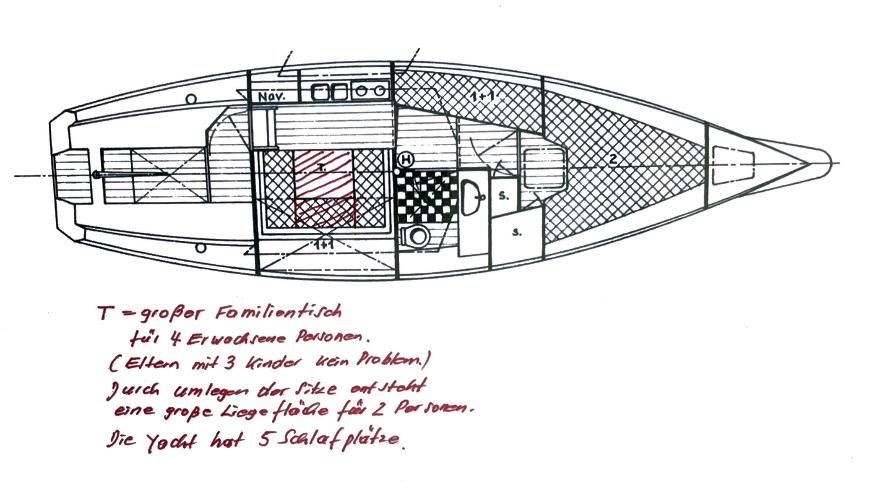 Nav.
1+1
2
T.
H
S.
S.
1+1
T = großer Familientisch
für 4 Erwachsene Personen.
(Eltern mit 3 Kinder kein Problem.)
Durch umlegen der Sitze entsteht
eine große Liegefläche für 2 Personen.
Die Yacht hat 5 Schlafplätze.